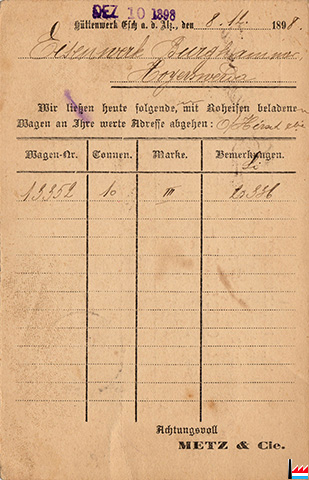 DEZ 10 1898
Hüttenwerk Esch a. d. Alz., den 8. 11. 1898.
Eisenwerk Burghammer
Hoyerswerda
Wir ließen heute folgende, mit Roheisen beladenen
Wagen an Ihre werte Adresse abgehen:
Wagen-Nr. Tonnen. Marke. Bemerkungen.
13352 10 III
Achtungsvoll
METZ & Cie.